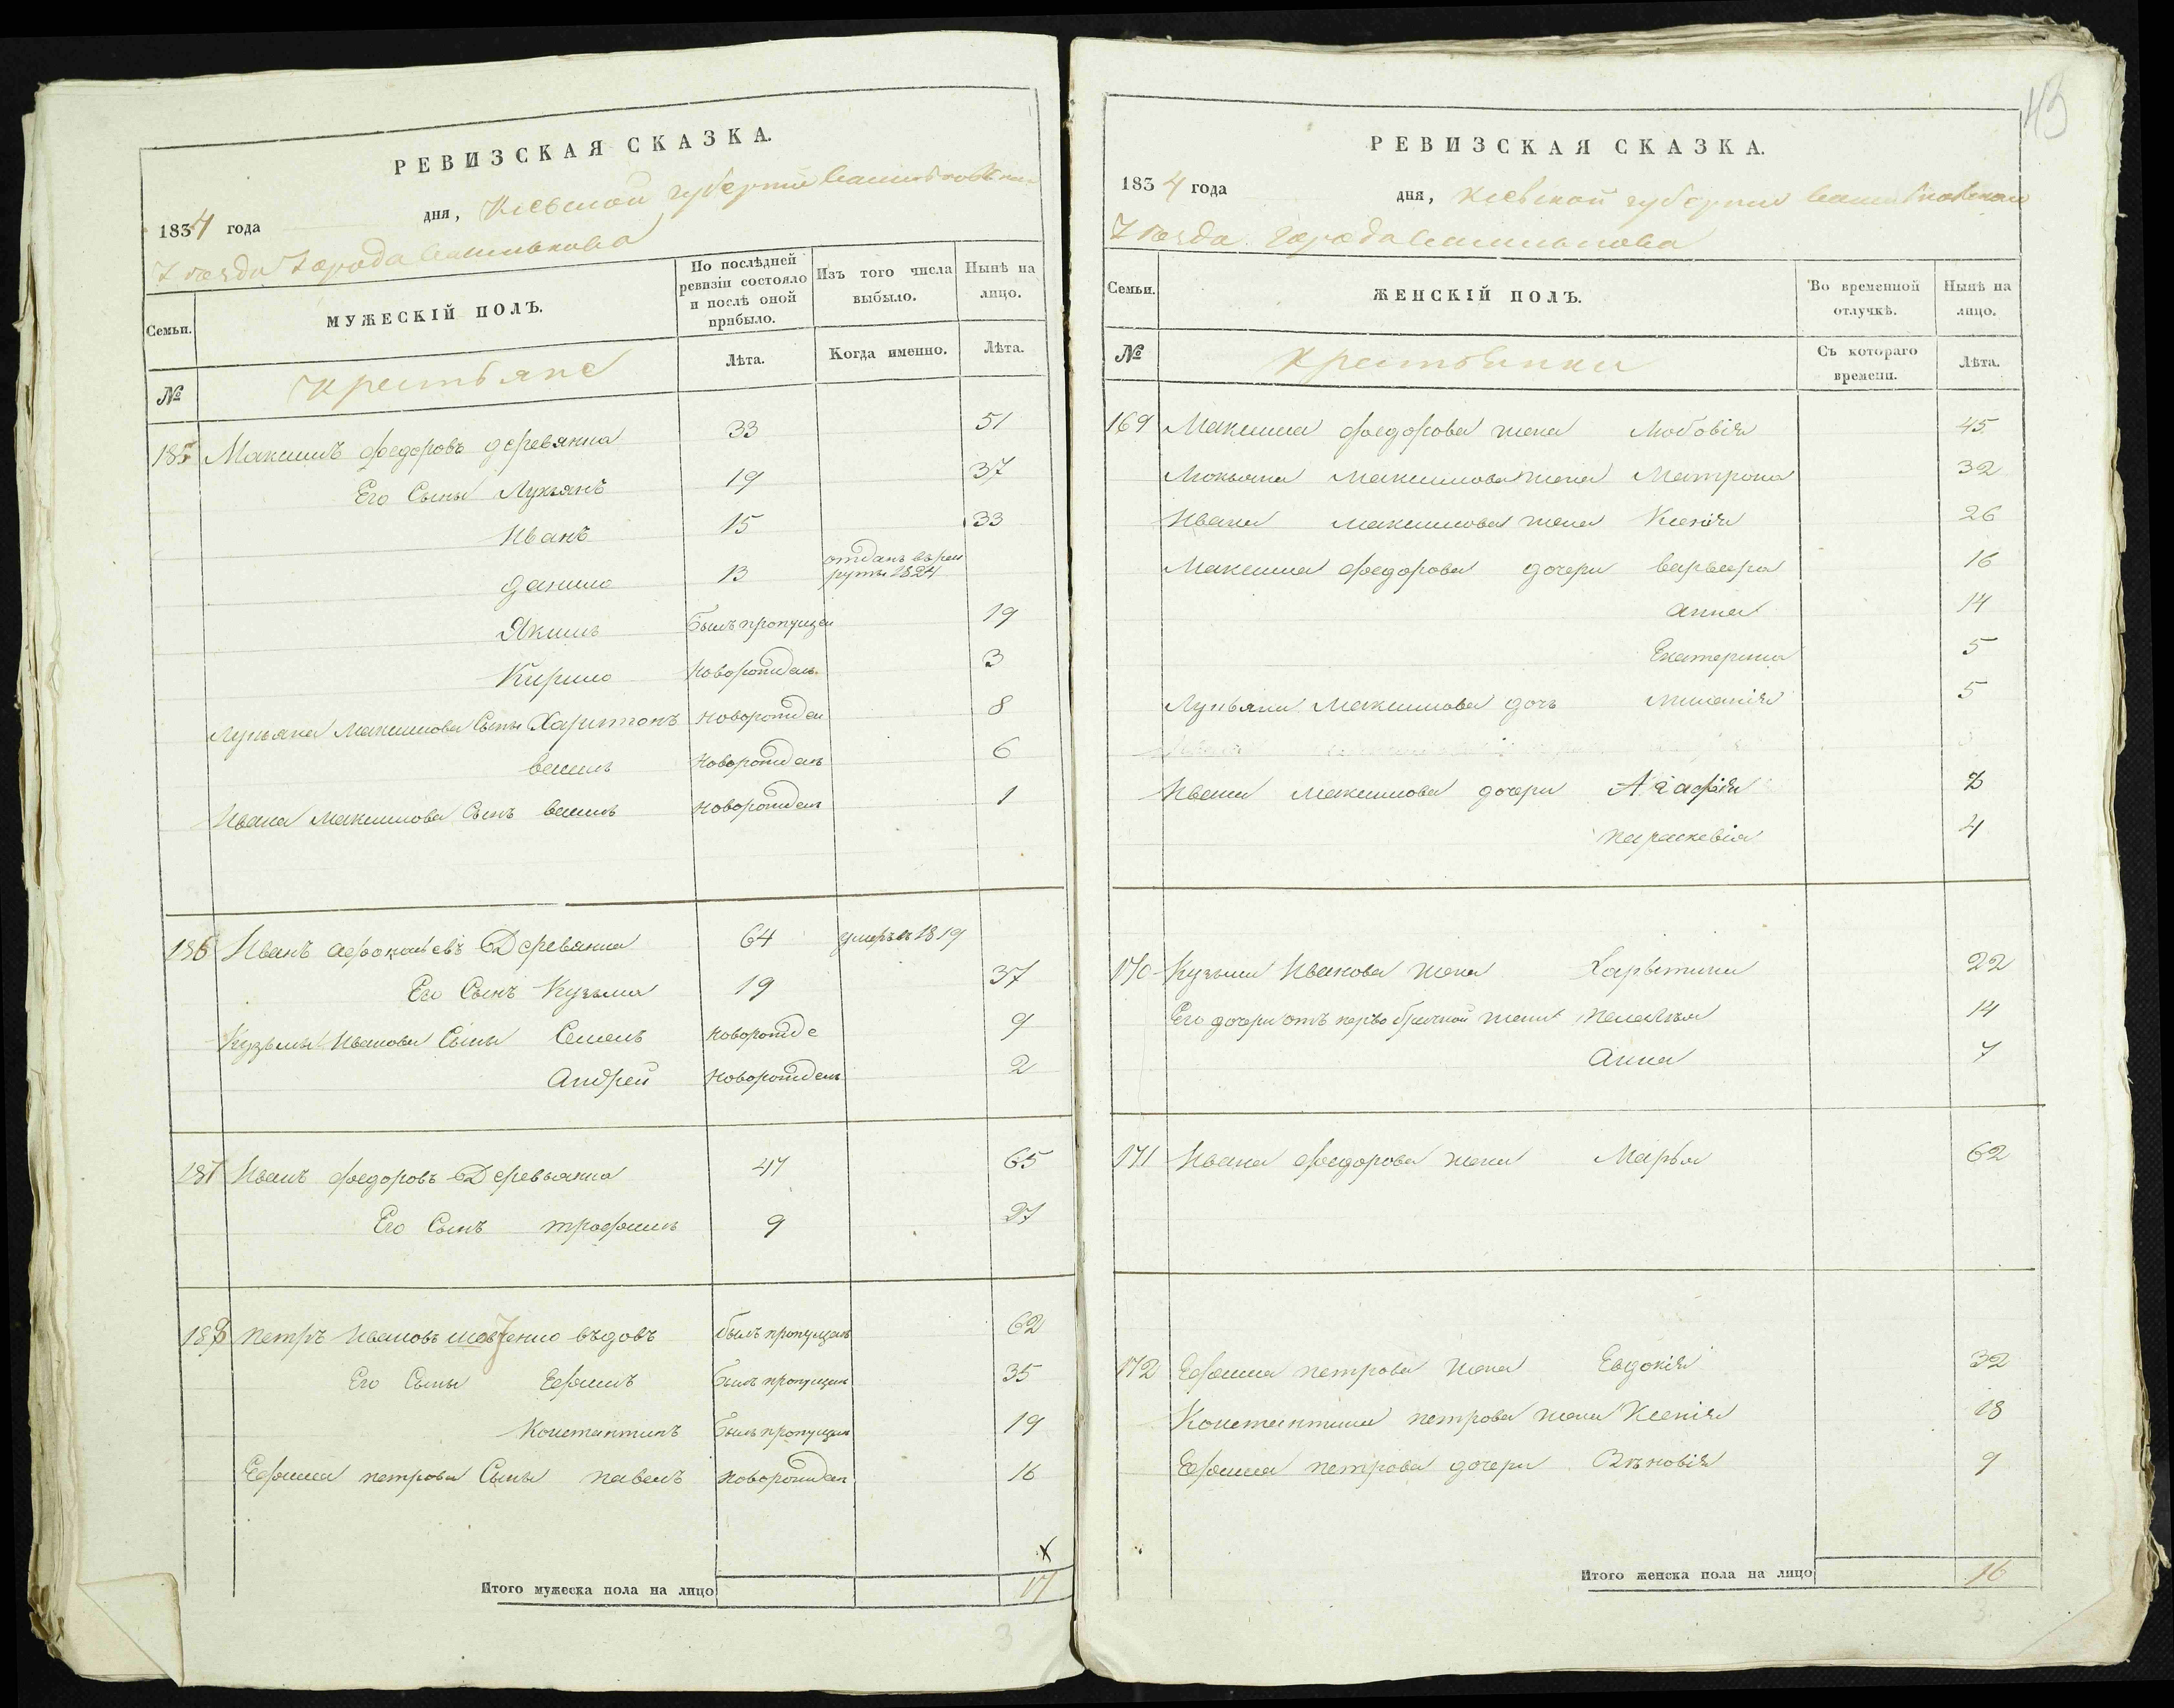 РЕВИЗСКАЯ СКАЗКА.
1834 года дня, Кіевской губерніи Васильковскаго
Уѣзда Города Василькова
Семьи.
МУЖЕСКІЙ ПОЛЪ.
По послѣдней ревизіи состояло и послѣ оной прибыло.
Изъ того числа выбыло.
Нынѣ на лицо.
№
Крестьяне
Лѣта.
Когда именно.
Лѣта.
185 Максимъ федоровъ деревянка 33 51
Его Сыны Лукьянъ 19 37
Иванъ 15 33
данило 13 отданъ въ рек
руты 1824
Якимъ былъ пропущен 19
Кирило новорожденъ 3
Лукьяна Максимова Сыны Харитонъ новорожден 8
василь новорожденъ 6
Ивана Максимова Сынъ василь новорожден 1
186 Иванъ афонасьевъ Деревянка 64 умеръ въ 1819
Его Сынъ Кузьма 19 37
Кузьмы Иванова Сыны Семенъ новорожде 9
Андрей новорожденъ 2
187 Иванъ федоровъ Деревянка 47 65
Его Сынъ трофимъ 9 27
188 петръ Ивановъ шевченко въдовъ былъ пропущенъ 62
Его Сыны Ефимъ былъ пропущен 35
Константинъ былъ пропущен 19
Ефима петрова Сыны павелъ новорожден 16
х
Итого мужеска пола на лицо 17
3
43
РЕВИЗСКАЯ СКАЗКА.
1834 года дня, Кіевской губерніи Васильковскаго
Уѣзда Города Василькова
Семьи.
ЖЕНСКІЙ ПОЛЪ.
Во временной отлучкѣ.
Нынѣ на лицо.
№
Крестьянки
Съ котораго времени.
Лѣта.
169 Максима федорова жена Любовія 45
Локьяна Максимова жена Матрона 32
Ивана максимова жена Ксенія 26
Максима федорова дочери варвара 16
анна 14
Екатерина 5
Лукьяна Максимова дочь 5
Ивана Максимова дочери Агафія 8
параскевія 4
170 Кузьмы Иванова жена Харытина 22
Его дочери отъ перво брачной жены пелагья 14
Анна 7
171 Ивана федорова жена Марья 62
172 Ефима петрова жена Евдокія 32
Константина петрова жена Ксенія 18
Ефима петрова дочери Зѣновія 9
Итого женска пола на лицо 16
3